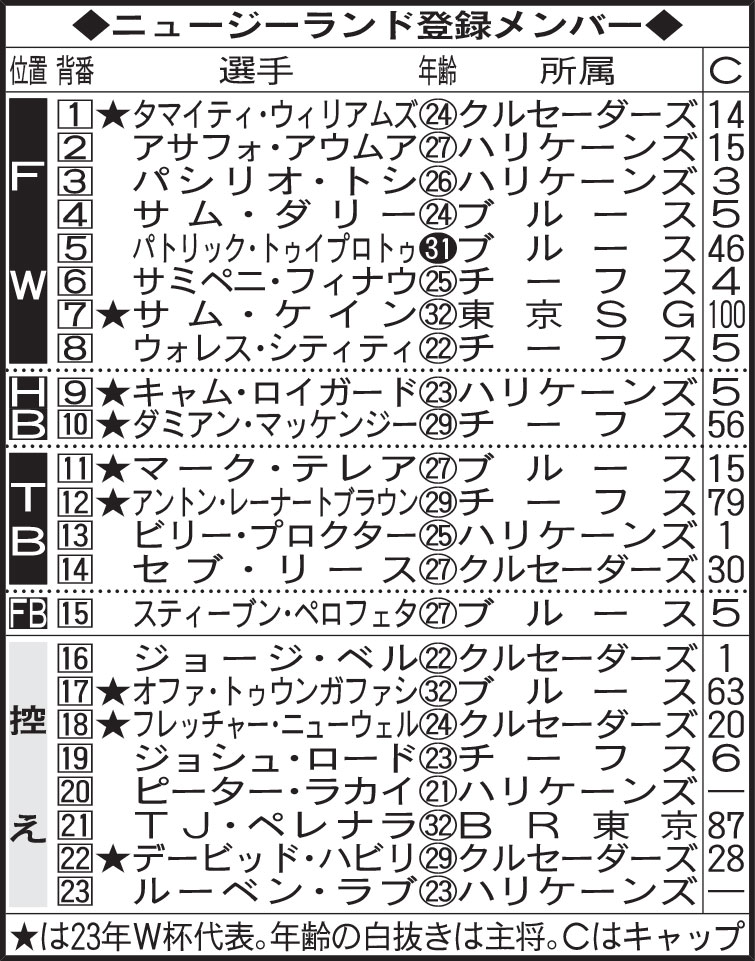 ◆ニュージーランド登録メンバー◆
位置 背番 選手 年齢 所属 C
FW 1 ★タマイティ・ウィリアムズ ㉔ クルセーダーズ 14
2 アサフォ・アウムア ㉗ ハリケーンズ 15
3 パシリオ・トシ ㉖ ハリケーンズ 3
4 サム・ダリー ㉔ ブルース 5
5 パトリック・トゥイプロトゥ ㉛ ブルース 46
6 サミペニ・フィナウ ㉕ チーフス 4
7 ★サム・ケイン ㉜ 東京SG 100
8 ウォレス・シティティ ㉒ チーフス 5
HB 9 ★キャム・ロイガード ㉓ ハリケーンズ 5
10 ★ダミアン・マッケンジー ㉙ チーフス 56
TB 11 ★マーク・テレア ㉗ ブルース 15
12 ★アントン・レーナートブラウン ㉙ チーフス 79
13 ビリー・プロクター ㉕ ハリケーンズ 1
14 セブ・リース ㉗ クルセーダーズ 30
FB 15 スティーブン・ペロフェタ ㉗ ブルース 5
控え 16 ジョージ・ベル ㉒ クルセーダーズ 1
17 ★オファ・トゥウンガファシ ㉜ ブルース 63
18 ★フレッチャー・ニューウェル ㉔ クルセーダーズ 20
19 ジョシュ・ロード ㉓ チーフス 6
20 ピーター・ラカイ ㉑ ハリケーンズ ―
21 TJ・ペレナラ ㉜ BR東京 87
22 ★デービッド・ハビリ ㉙ クルセーダーズ 28
23 ルーベン・ラブ ㉓ ハリケーンズ ―
★は23年W杯代表。年齢の白抜きは主将。Cはキャップ